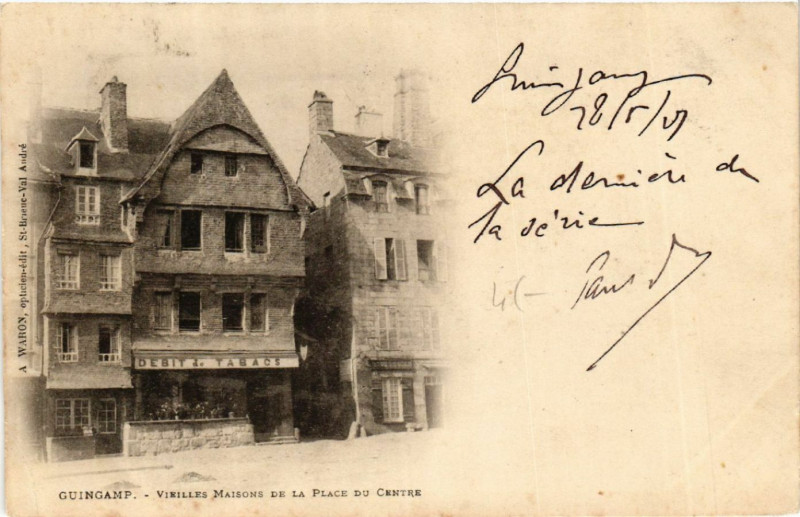 Guingamp
28/5/01
La dernière de
la série
4f-
A WARON, opticien-édit, St-Brieuc-Val André
DEBIT de TABACS
GUINGAMP. - VIEILLES MAISONS DE LA PLACE DU CENTRE